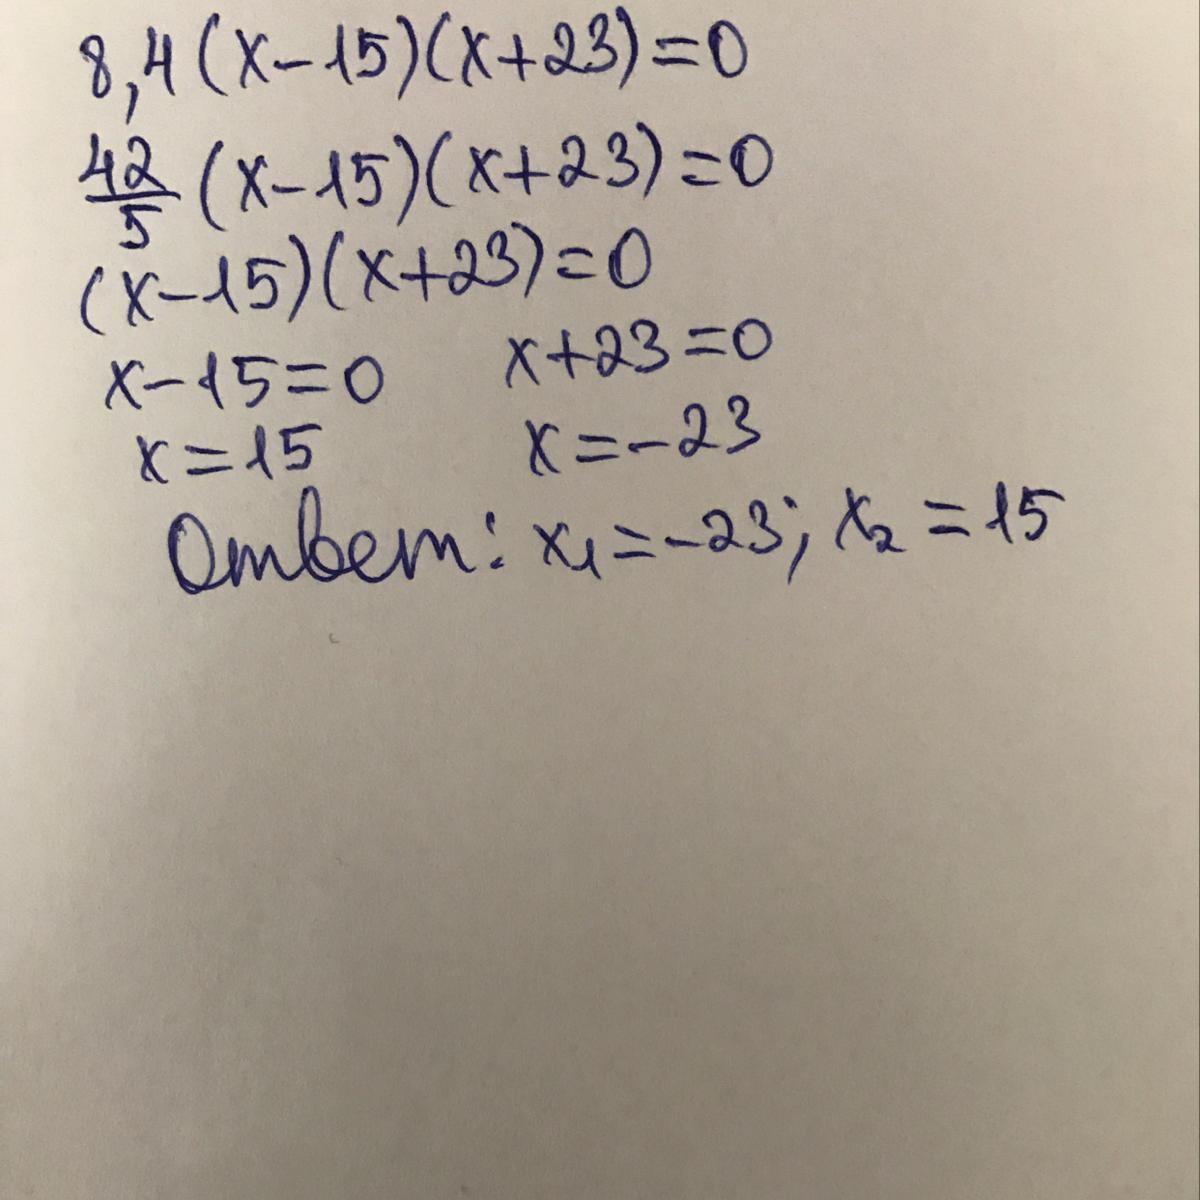 8,4(x-15)(x+23)=0
42/5(x-15)(x+23)=0
(x-15)(x+23)=0
x-15=0 x+23=0
x=15 x=-23
Ответ: x₁=-23; x₂=15